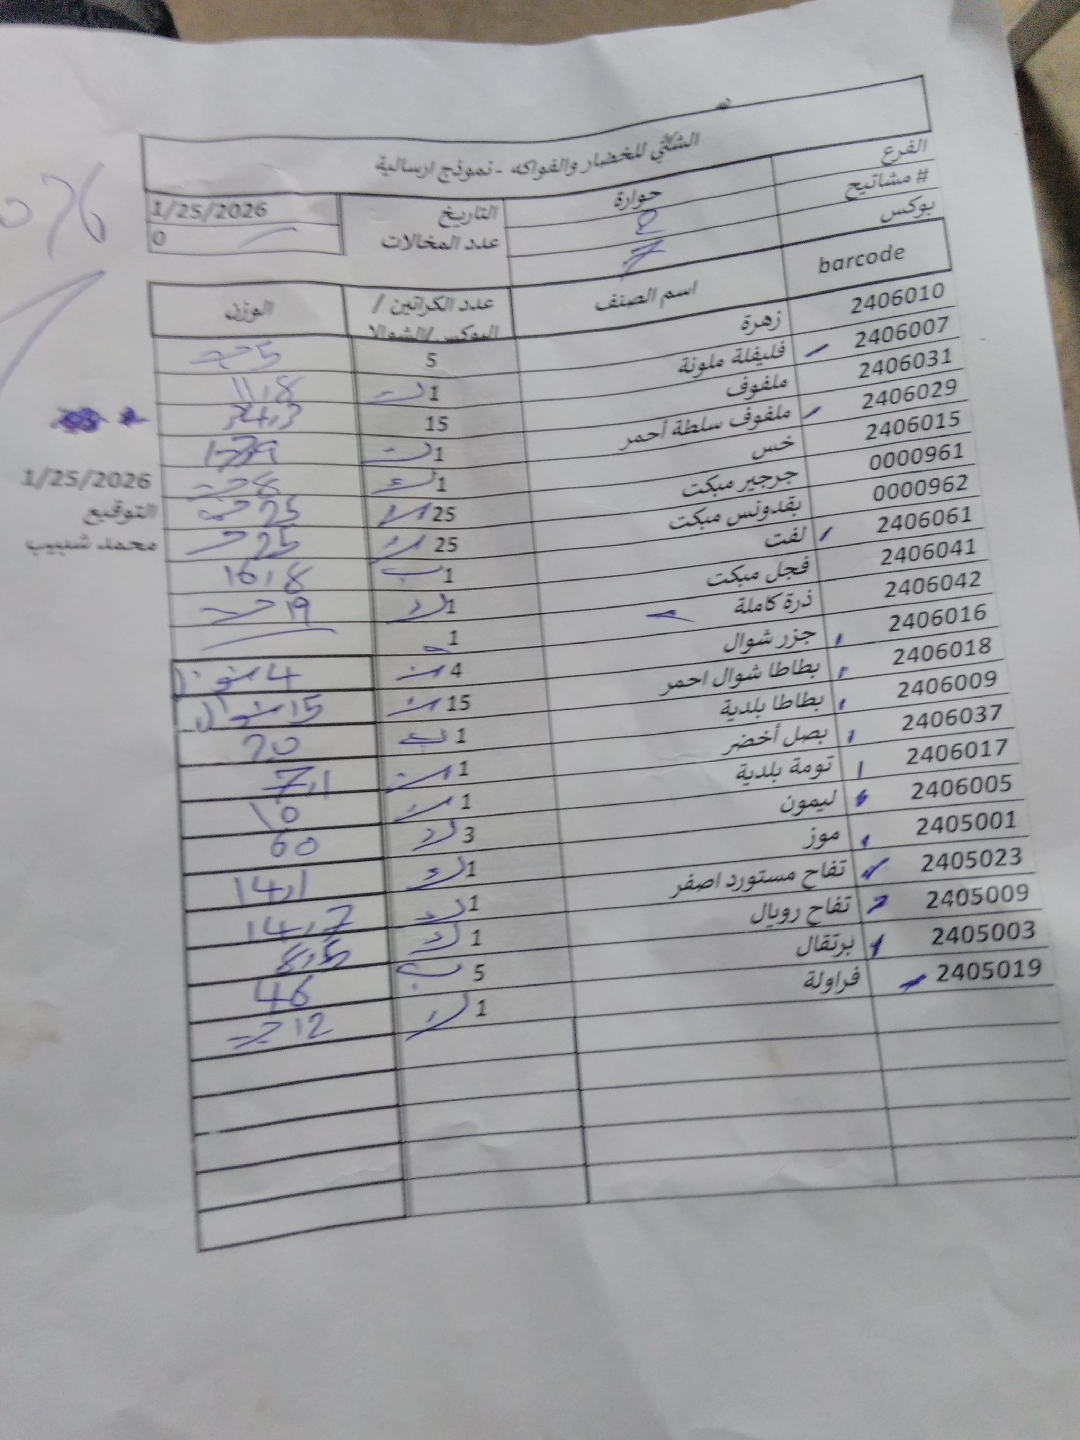 الشتي للخضار والفواكه - نموذج ارسالية
الفرع حوارة التاريخ 1/25/2026
# مشاتيح 2 عدد المخالات 0
بوكس 7
barcode اسم الصنف عدد الكراتين / البوكس/الشوالا الوزن
2406010 زهرة 5 5
2406007 فليفلة ملونة 1 11,8
2406031 ملفوف 15 34,3
2406029 ملفوف سلطة أحمر 1
2406015 خس 1 8
0000961 جرجير مبكت 25 25
0000962 بقدونس مبكت 25 25
2406061 لفت 1 16,8
2406041 فجل مبكت 1 19
2406042 ذرة كاملة 1
2406016 جزر شوال 4 4 شوال
2406018 بطاطا شوال احمر 15 15 شوال
2406009 بطاطا بلدية 1 20
2406037 بصل أخضر 1 7,1
2406017 تومة بلدية 1 10
2406005 ليمون 3 60
2405001 موز 1 14,1
2405023 تفاح مستورد اصفر 1 14,7
2405009 تفاح رويال 1 8,5
2405003 برتقال 5 46
2405019 فراولة 1 12
1/25/2026
التوقيع
محمد شبيب